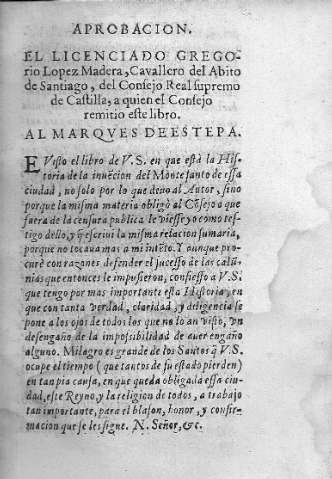 APROBACION.
EL LICENCIADO GREGO-
rio Lopez Madera, Cavallero del Abito
de Santiago, del Consejo Real supremo
de Castilla, a quien el Consejo
remitio este libro.
AL MARQVES DE ESTEPA.
E Visto el libro de V.S. en que està la His-
toria de la inuēcion del Monte santo de essa
ciudad, no solo por lo que deuo al Autor, sino
porque la misma materia obligò al Cōsejo a que
fuera de la censura publica le viesse yo como tes-
tigo dello, y q̄ escriui la misma relacion sumaria,
porque no tocaua mas a mi intēto. Y aunque pro-
curè con razones defender el sucesso de las calū-
nias que entonces le impusieron, confiesso a V.S.
que tengo por mas importante esta Historia, en
que con tanta verdad, claridad, y deligencia se
pone a los ojos de todos los que no lo an visto, vn
desengaño de la impossibilidad de auer engaño
alguno. Milagro es grande de los Santos q̄ V.S.
ocupe el tiempo (que tantos de su estado pierden)
en tan pia causa, en que queda obligada essa ciu-
dad, este Reyno, y la religion de todos, a trabajo
tan importante, para el blason, honor, y confir-
macion que se les sigue. N. Señor, &c.